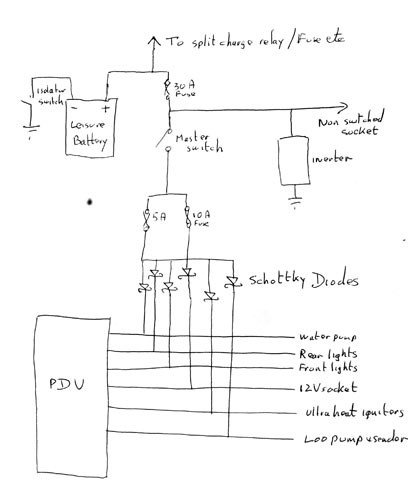 To split charge relay/Fuse etc
Isolator
switch
- +
Leisure
Battery
30A
Fuse
Non switched
socket
Master
switch
inverter
5A
10A
Fuse
Schottky Diodes
PDU
Water pump
Rear lights
Front lights
12V socket
Ultra heat ignitors